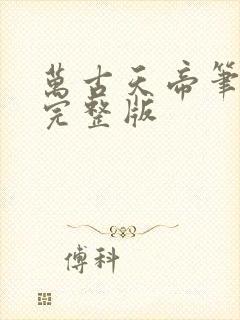 萬古天帝筆
完整版
傅科